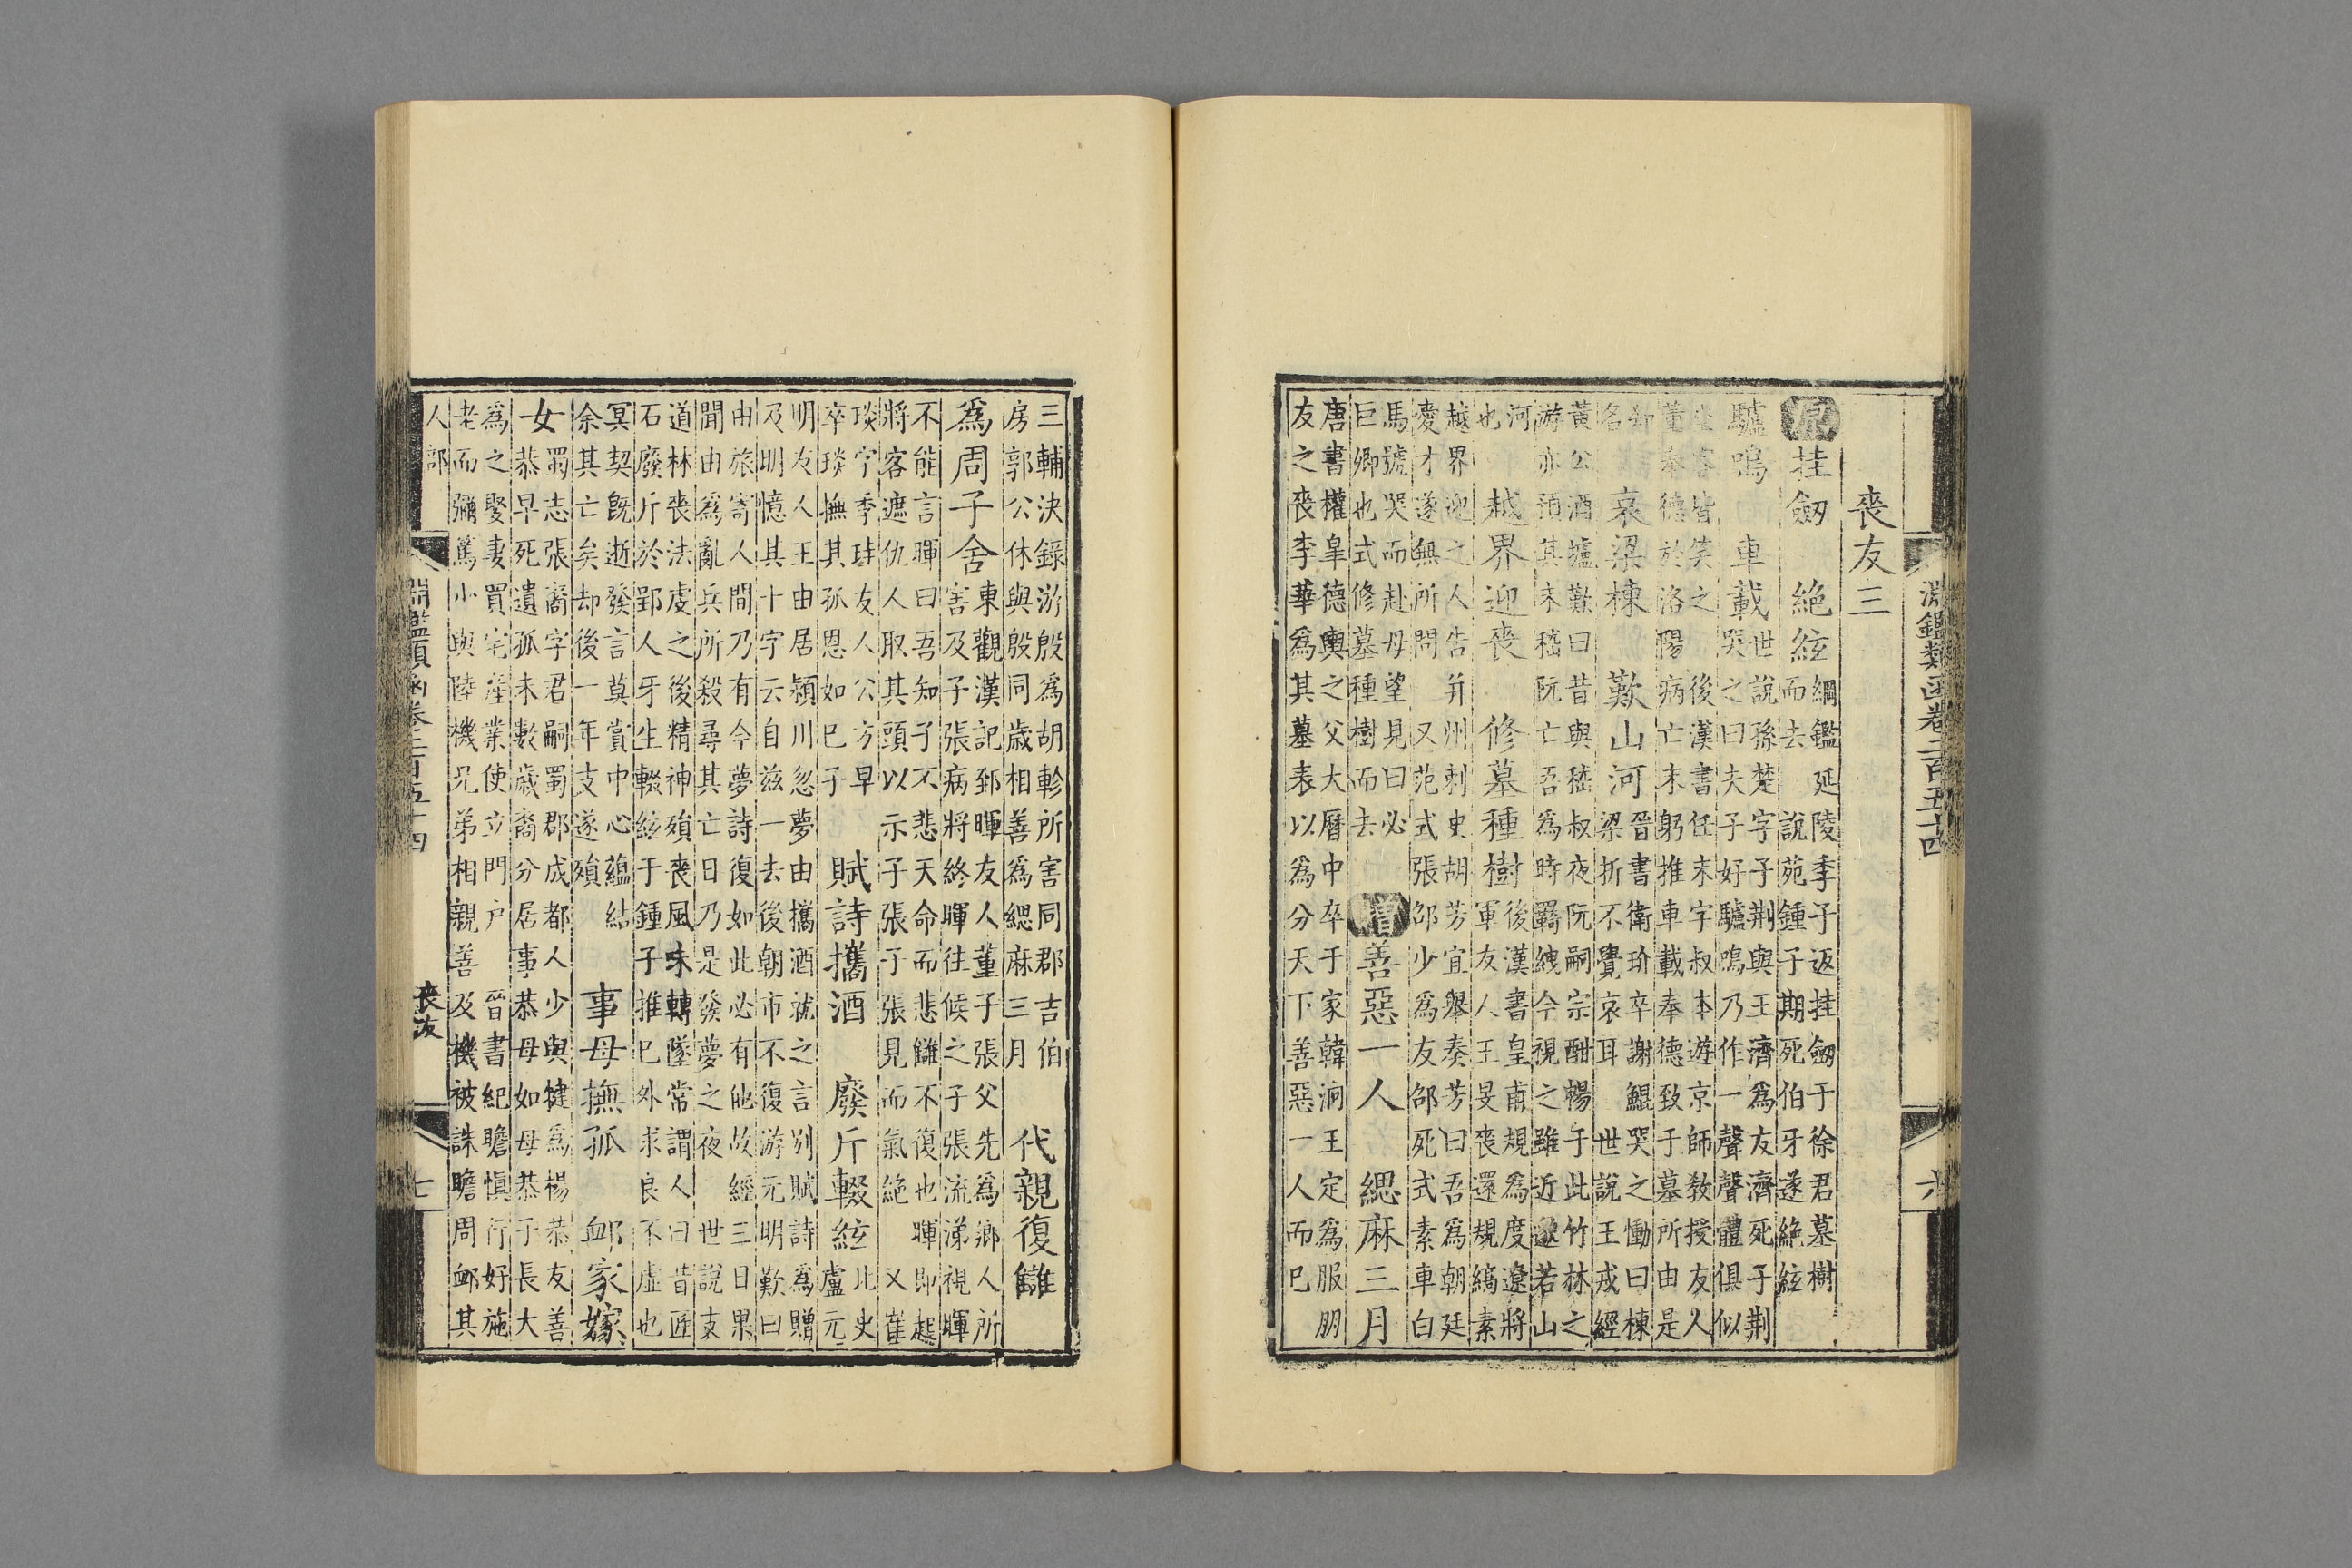 淵鑑類函卷二百五十四 六
喪友三
原 挂劔 絶絃
綱鑑 延陵季子返挂劔于徐君墓樹
而去 說苑鍾子期死伯牙遂絶絃
驢鳴 車載
世說孫楚字子荆與王濟爲友濟死子荆
哭之曰夫子好驢鳴乃作一聲聲體俱似
坐客皆笑之 後漢書任末字叔本遊京師敎授友人
董奉德於洛陽病亡末躬推車載奉德致于墓所由是
知
名
哀梁棟 歎山河
晉書衛玠卒謝鯤哭之慟曰棟
梁折不覺哀耳 世說王戎經
黄公酒壚歎曰昔與嵇叔夜阮嗣宗酣暢于此竹林之
游亦預其末嵇阮亡吾爲時羈紲今視之雖近邈若山
河
也
越界迎喪 修墓種樹
後漢書皇甫規爲度遼將
軍友人王旻喪還規縞素
越界迎之人告并州刺史胡芳宜舉奏芳曰吾爲朝廷
愛才遂無所問 又范式張邵少爲友邵死式素車白
馬號哭而赴母望見曰必
巨卿也式修墓種樹而去
增 善惡一人 緦麻三月
唐書權臯德輿之父大曆中卒于家韓洄王定爲服朋
友之喪李華爲其墓表以爲分天下善惡一人而已
三輔決錄游殷爲胡軫所害同郡吉伯
房郭公休與殷同歲相善爲緦麻三月
代親復讎
爲周子舍
東觀漢記郅暉友人董子張父先爲鄉人所
害及子張病將終暉往候之子張流涕視暉
不能言暉曰吾知子不悲天命而悲讎不復也 暉即起
將客遮仇人取其頭以示子張子張見而氣絶 又崔
琰字季珪友人公方早
卒琰撫其孤恩如已子
賦詩攜酒 廢斤輟絃
北史
盧元
明友人王由居潁川忽夢由攜酒就之言别賦詩爲贈
及明憶其十字云自兹一去後朝市不復游元明歎曰
由旅寄人間乃有今夢詩復如此必有他故經三日果
聞由爲亂兵所殺尋其亡日乃是發夢之夜 世說支
道林喪法虔之後精神殞喪風味轉墜常謂人曰昔匠
石廢斤於郢人牙生輟絃于鍾子推已外求良不虛也
冥契既逝發言莫賞中心蘊結
余其亡矣却後一年支遂殞
事母撫孤 卹家嫁
女
蜀志張裔字君嗣蜀郡成都人少與犍爲楊恭友善
恭早死遺孤未數歲裔分居事恭母如母恭子長大
爲之娶妻買宅產業使立門户 晉書紀瞻慎行好施
老而彌篤小與陸機兄弟相親善及機被誅瞻周卹其
人部
淵鑑類函卷二百五十四 喪友 七